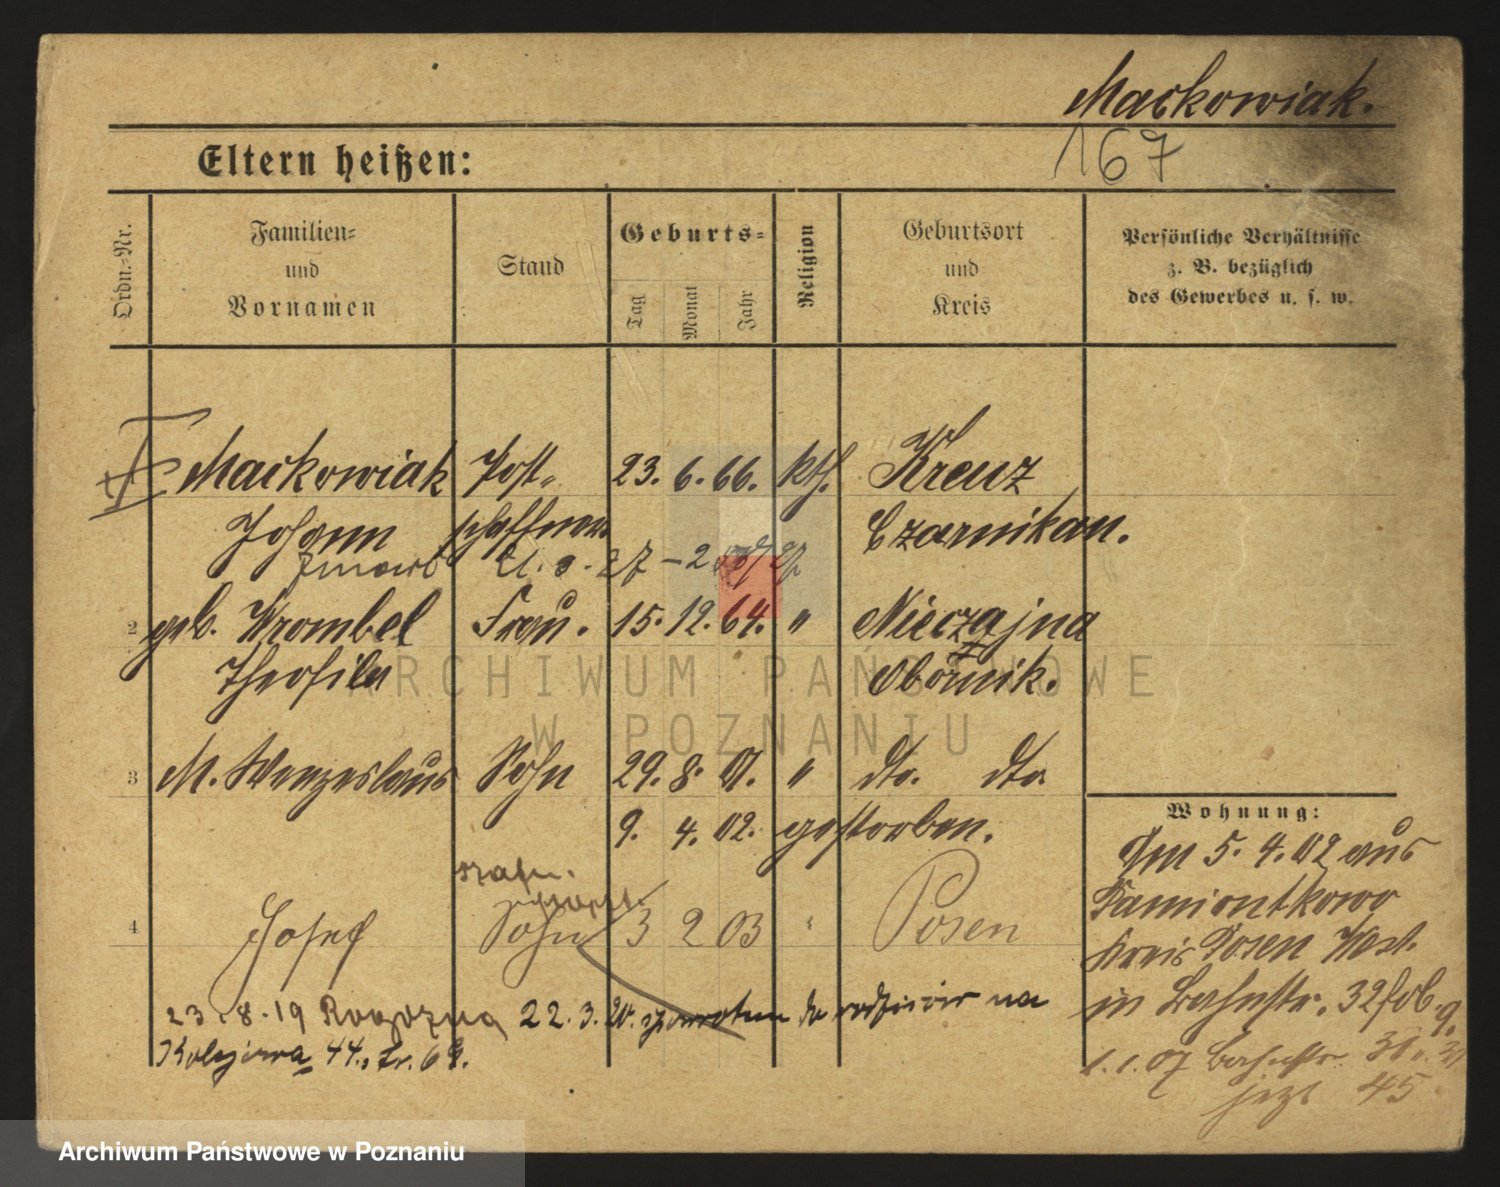 Mackowiak.
167
Eltern heißen:
Ordn.-Nr.
Familien-
und
Vornamen
Stand
Geburts-
Tag
Monat
Jahr
Religion
Geburtsort
und
Kreis
Persönliche Verhältnisse
z. B. bezüglich
des Gewerbes u. s. w.
Mackowiak Post- 23. 6. 66. kth. Kreuz
Johann schaffner Czarnikau.
zmarł 27-2
2 geb. Krombel Frau. 15. 12. 64. " Nieczajna
Theofila Obornik.
3 M. Wenzeslaus Sohn 29. 8. 01. " dto. dto
9. 4. 02. gestorben.
Wohnung:
Am 5. 4. 02 aus
Kamiontkowo
Kreis Posen West.
in Bahnstr. 32
4 Josef Sohn 3 2 03 " Posen
23.8.19 Rogoźna 22.3.20. do rodziców na
Kolejowa 44. tr. 69.
1.1.07 Bahnstr. 30
jezt 45
ARCHIWUM PAŃSTWOWE
W POZNANIU
Archiwum Państwowe w Poznaniu